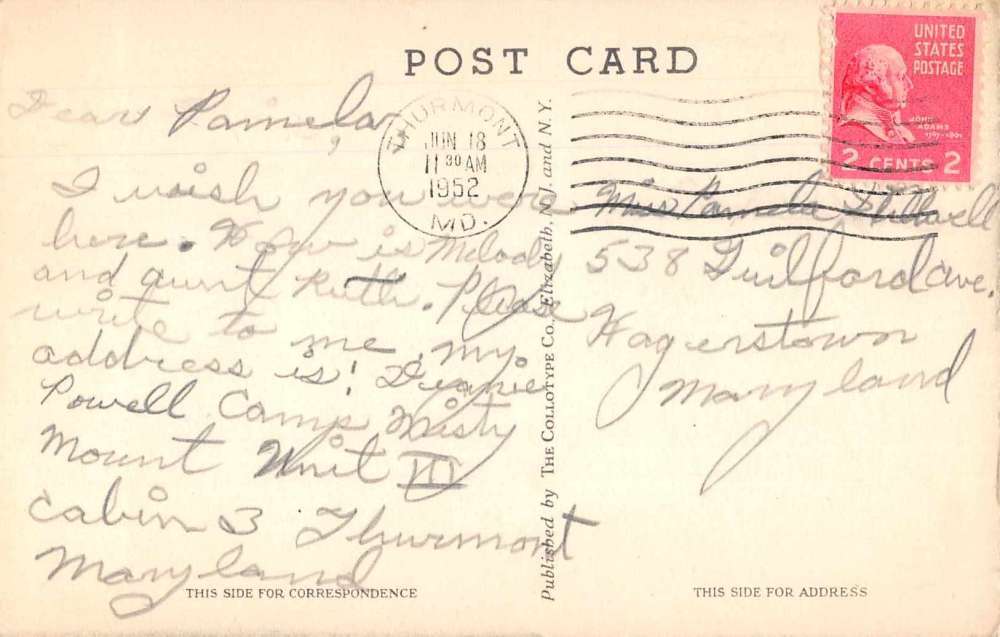 POST CARD
UNITED
STATES
POSTAGE
JOHN
ADAMS
1797-1801
2 CENTS 2
THURMONT
JUN 18
11 30 AM
1952
MD.
Dear Pamela,
I wish you were
here. How is Melody
and aunt Ruth. Please
write to me. my
address is: Dianne
Powell Camp Misty
Mount Unit III
Cabin 3 Thurmont
Maryland
THIS SIDE FOR CORRESPONDENCE
Published by THE COLLOTYPE Co., Elizabeth, N. J. and N. Y.
Miss Pamela
538 Guilford ave.
Hagerstown
Maryland
THIS SIDE FOR ADDRESS